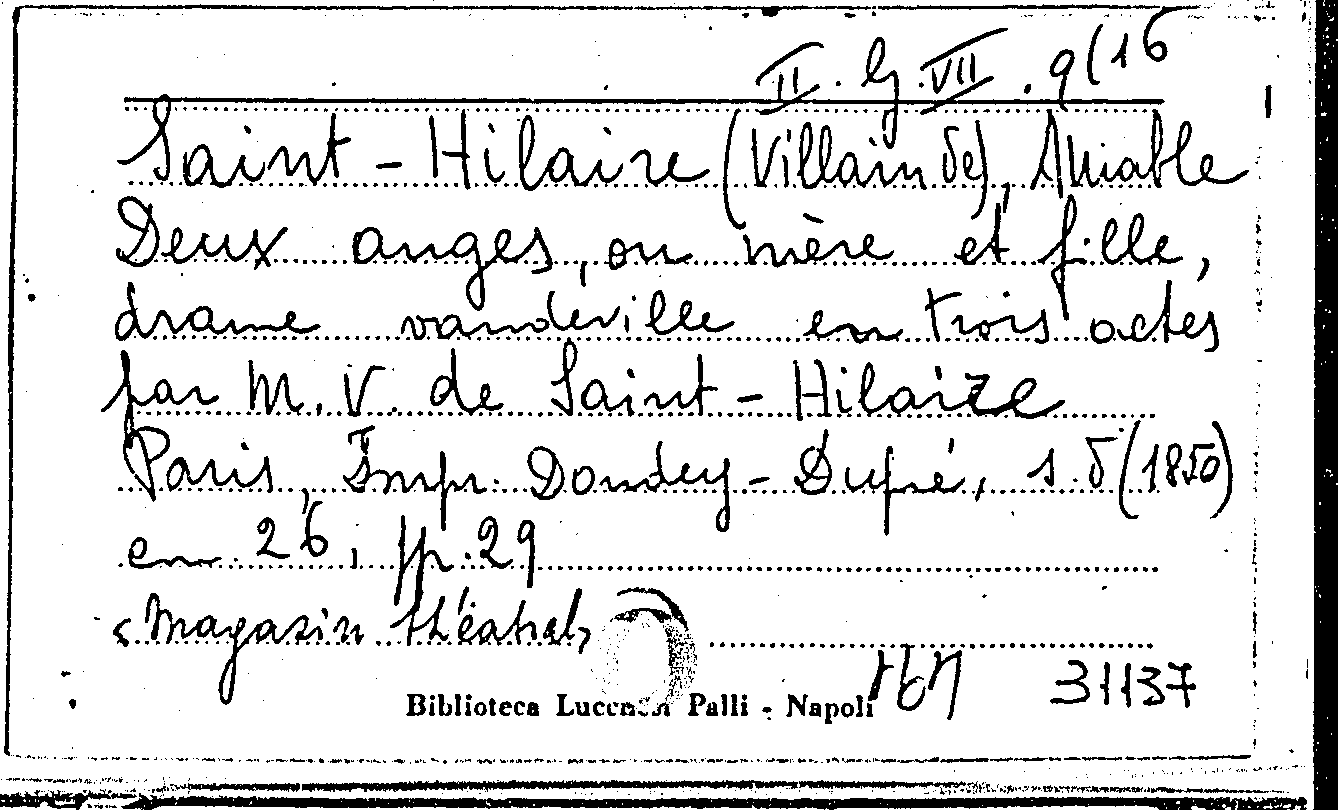 II. G. VII. 9(16
Saint-Hilaire (Villain de), Amable
Deux anges, ou mère et fille,
drame vaudeville en trois actes
par M. V. de Saint-Hilaire
Paris, Impr. Dondey-Dupré, s.d (1850)
cm. 26, pp. 29
<Magasin théatral>
Biblioteca Lucchesi Palli - Napoli
31137